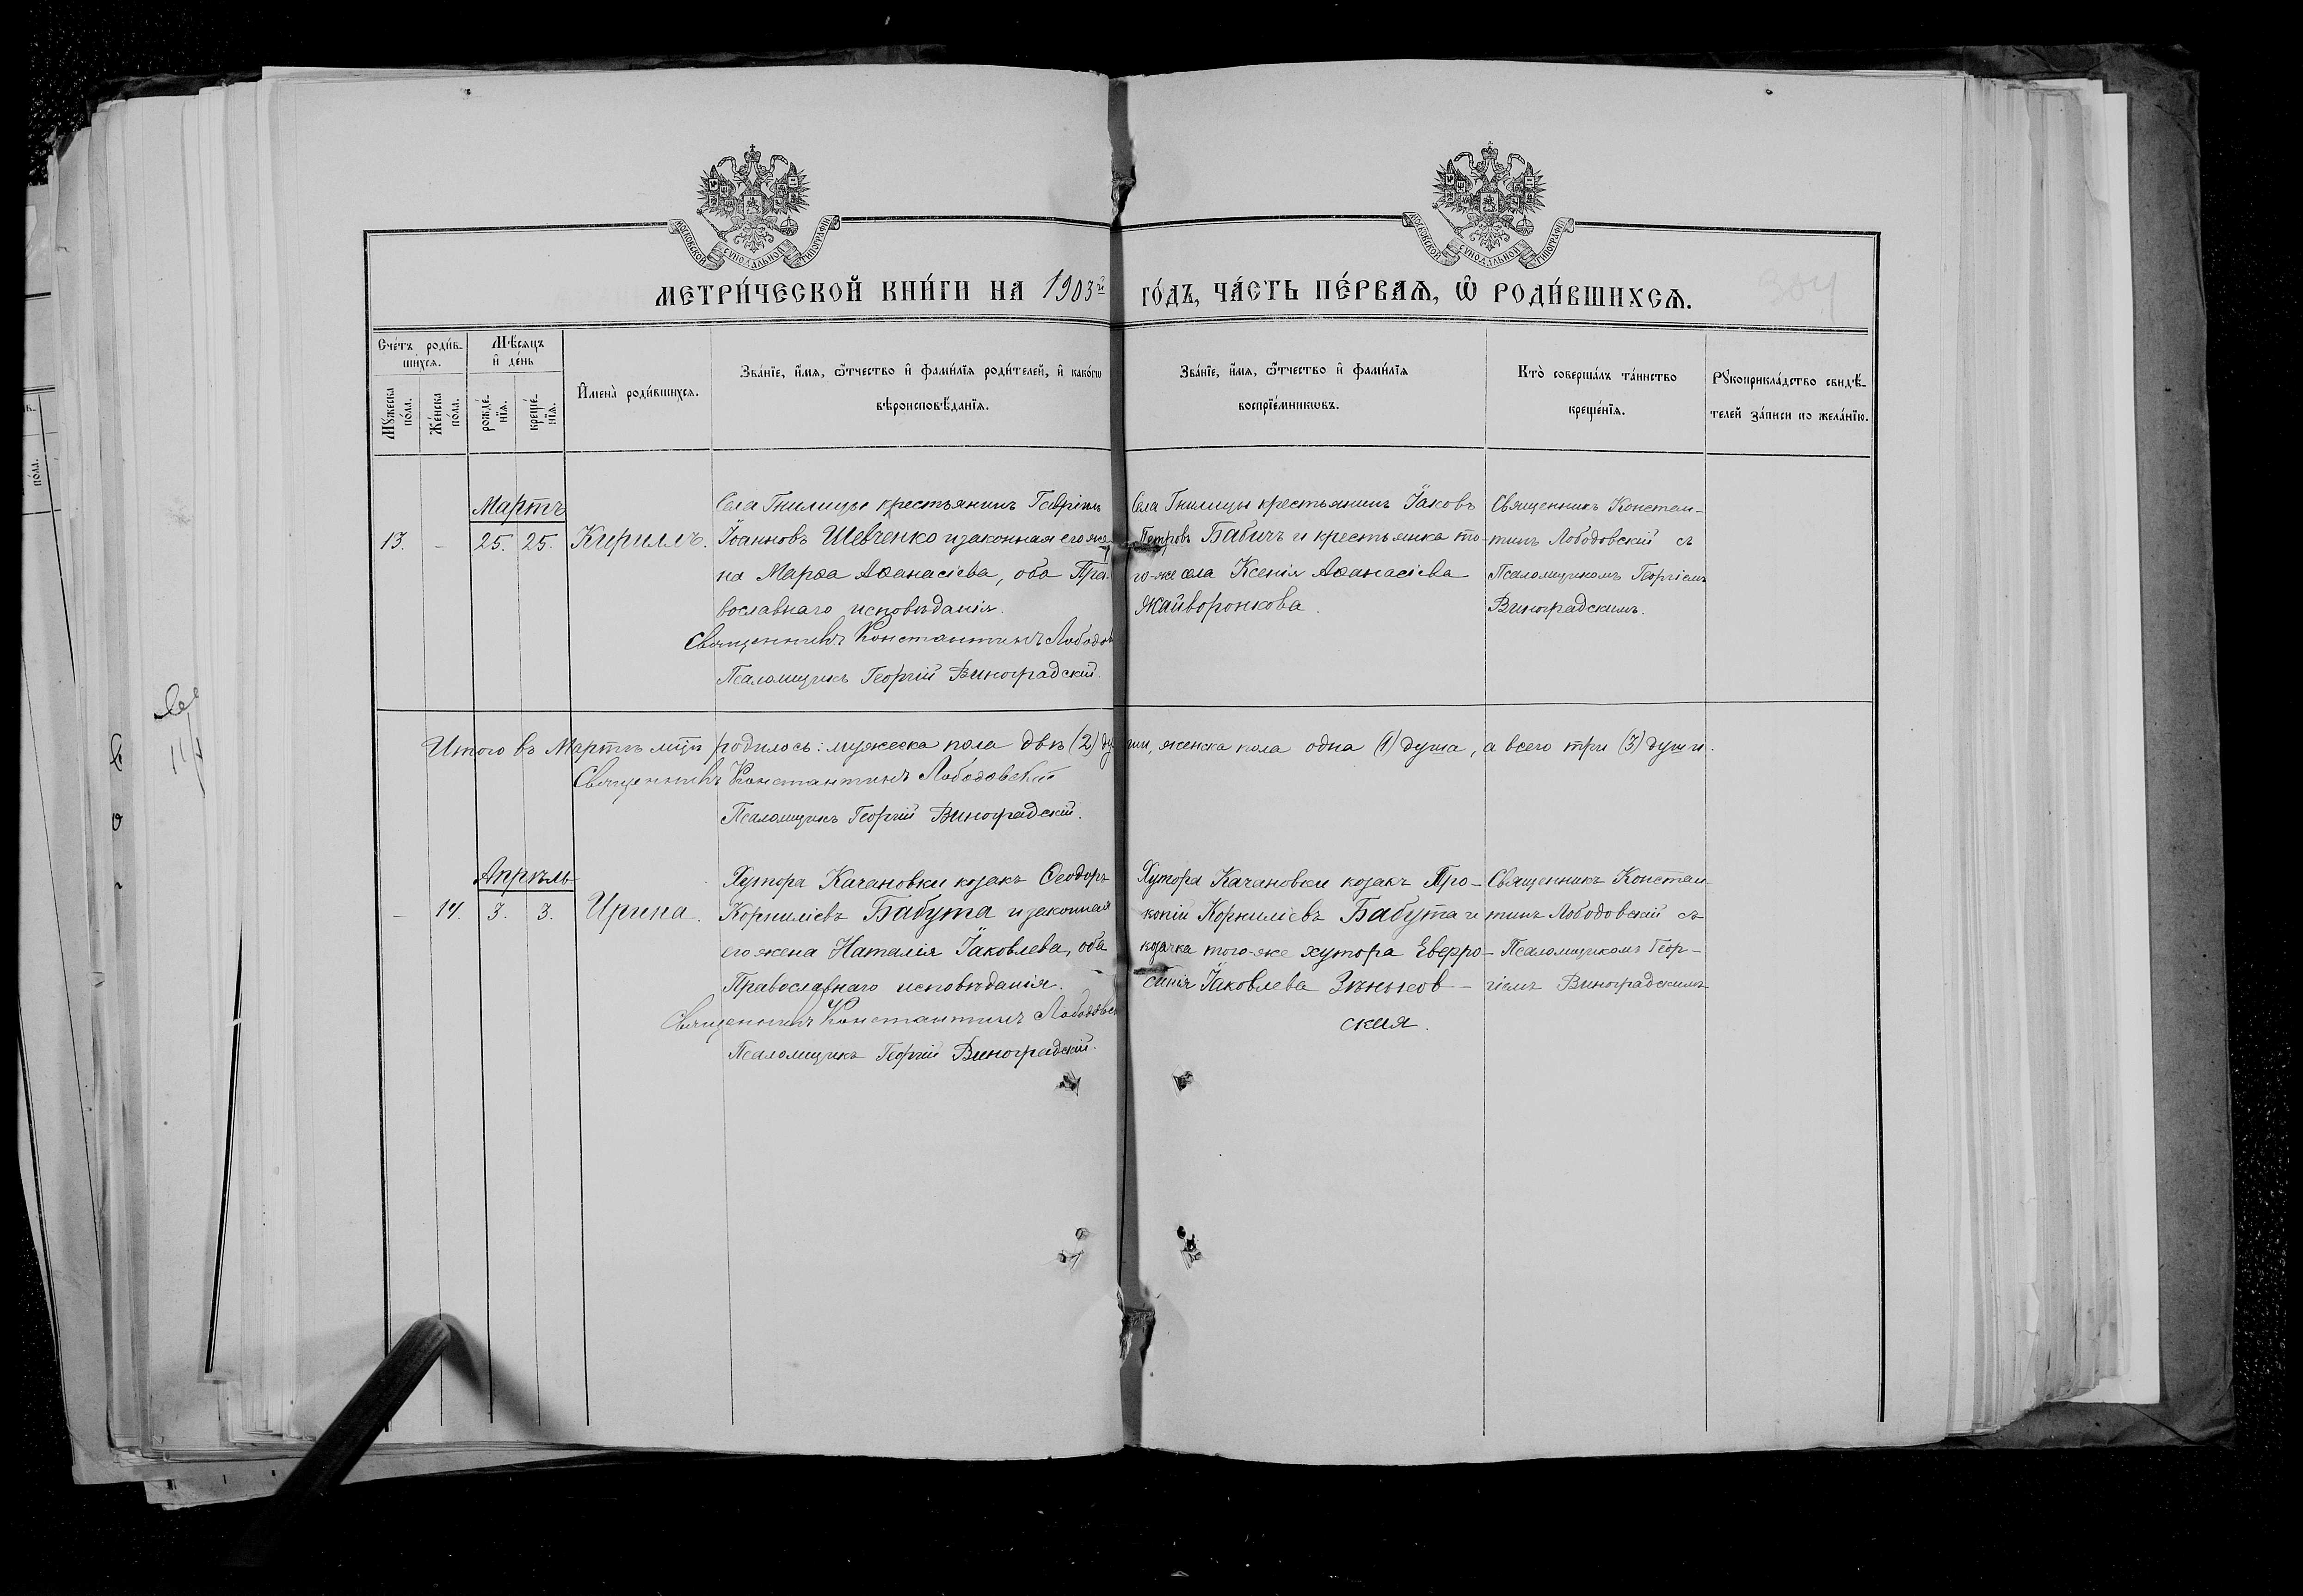 МОСКОВСКОЙ СѴНОДАЛЬНОЙ ТИПОГРАФІИ
МОСКОВСКОЙ СѴНОДАЛЬНОЙ ТИПОГРАФІИ
МЕТРИ́ЧЕСКОЙ КНИ́ГИ НА 1903й ГО́ДЪ, ЧА́СТЬ ПЕ́РВАѦ, Ѡ РОДИ́ВШИХСѦ.
Сче́тъ роди́в-
шихсѧ.
Мꙋ́жеска
по́ла.
Же́нска
по́ла.
Мѣ́сѧцъ
и҆ де́нь
рожде́-
нїѧ.
креще́-
нїѧ.
И҆мена̀ роди́вшихсѧ.
Зва́нїе, и҆́мѧ, ѻ҆́тчество и҆ фами́лїѧ роди́телей, и҆ како́гѡ
вѣроисповѣ́данїѧ.
Зва́нїе, и҆́мѧ, ѻ҆́тчество и҆ фами́лїѧ
воспрїе́мникѡвъ.
Кто̀ соверша́лъ та́инство
креще́нїѧ.
Рꙋкоприкла́дство свидѣ́-
телей за́писи по жела́нїю.
Мартъ
13. – 25. 25. Кириллъ.
Села Гнилицы крестьянинъ Гавріилъ
Іоанновъ Шевченко и законная его же-
на Марѳа Аѳанасіева, оба Пра-
вославнаго исповѣданія.
Священникъ Константинъ Лободов
Псаломщикъ Георгій Виноградскій.
Села Гнилицы крестьянинъ Іаковъ
Петровъ Бабичъ и крестьянка то-
го-же села Ксенія Аѳанасіева
Жайворонкова.
Священникъ Констан-
тинъ Лободовскій съ
Псаломщикомъ Георгіемъ
Виноградскимъ.
Итого въ Мартѣ мцѣ родилось: мужеска пола двѣ (2) души, женска пола одна (1) душа, а всего три (3) души.
Священникъ Константинъ Лободовскій
Псаломщикъ Георгій Виноградскій.
Апрѣль
– 14. 3. 3. Ирина.
Хутора Качановки козакъ Ѳеодоръ
Корниліевъ Бабута и законная
его жена Наталія Іаковлева, оба
Православнаго исповѣданія.
Священникъ Константинъ Лободовск
Псаломщикъ Георгій Виноградскій.
Хутора Качановки козакъ Про-
копій Корниліевъ Бабута и
козачка того-же хутора Евфро-
синія Іаковлева Зѣньков-
ская.
Священникъ Констан-
тинъ Лободовскій съ
Псаломщикомъ Геор-
гіемъ Виноградскимъ